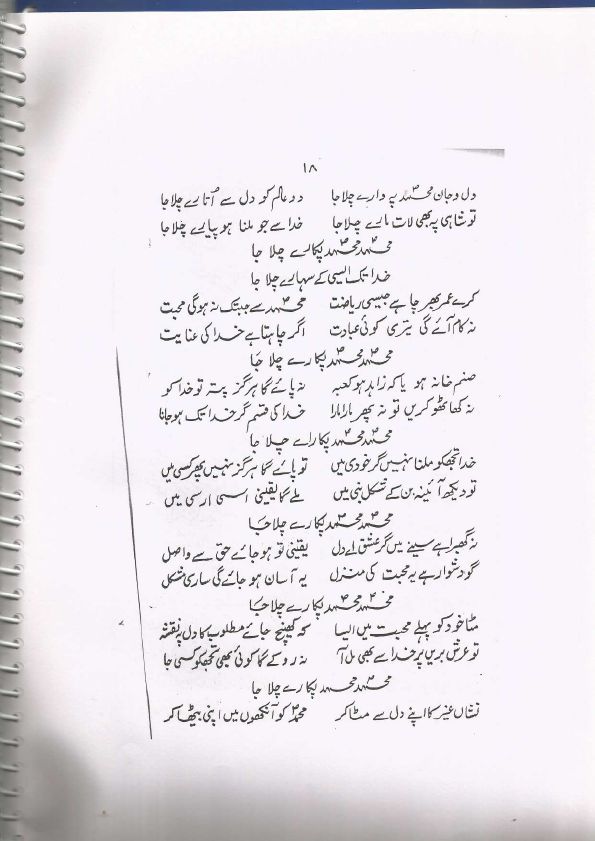 ۱۸
دل و جان محمدؐ پہ وارے چلا جا دو عالم کو دل سے اُتارے چلا جا
تو شاہی پہ بھی لات مارے چلا جا خدا سے جو ملنا ہو پیارے چلا جا
محمدؐ محمدؐ پکارے چلا جا
خدا تک اسی کے سہارے چلا جا
کرے عمر بھر چاہے جیسی ریاضت محمدؐ سے جبتک نہ ہوگی محبت
نہ کام آئے گی تیری کوئی عبادت اگر چاہتا ہے خدا کی عنایت
محمدؐ محمدؐ پکارے چلا جا
صنم خانہ ہو یا کہ زاہد ہو کعبہ نہ پائے گا ہرگز پتہ تو خدا کو
نہ کھا ٹھوکریں تو نہ پھر مارا مارا خدا کی قسم گر خدا تک ہو جانا
محمدؐ محمدؐ پکارے چلا جا
خدا تجھکو ملنا نہیں گر خودی میں تو پائے گا ہرگز نہیں پھر کسی میں
تو دیکھ آئینہ بن کے شکل نبی میں ملے گا یقینی اسی ارسی میں
محمدؐ محمدؐ پکارے چلا جا
نہ گھبرا ہے سینے میں گر عشق اے دل یقینی تو ہو جائے حق سے واصل
گو دشوار ہے یہ محبت کی منزل یہ آسان ہو جائے گی ساری مشکل
محمدؐ محمدؐ پکارے چلا جا
مٹا خود کو پہلے محبت میں ایسا کہ کھینچ جائے مطلوب کا دل پہ نقشہ
تو عرش بریں پر خدا سے بھی مل آ نہ روکے گا کوئی بھی تجھکو کسی جا
محمدؐ محمدؐ پکارے چلا جا
نشاں غیر کا اپنے دل سے مٹا کر محمدؐ کو آنکھوں میں اپنی بیٹھا کر